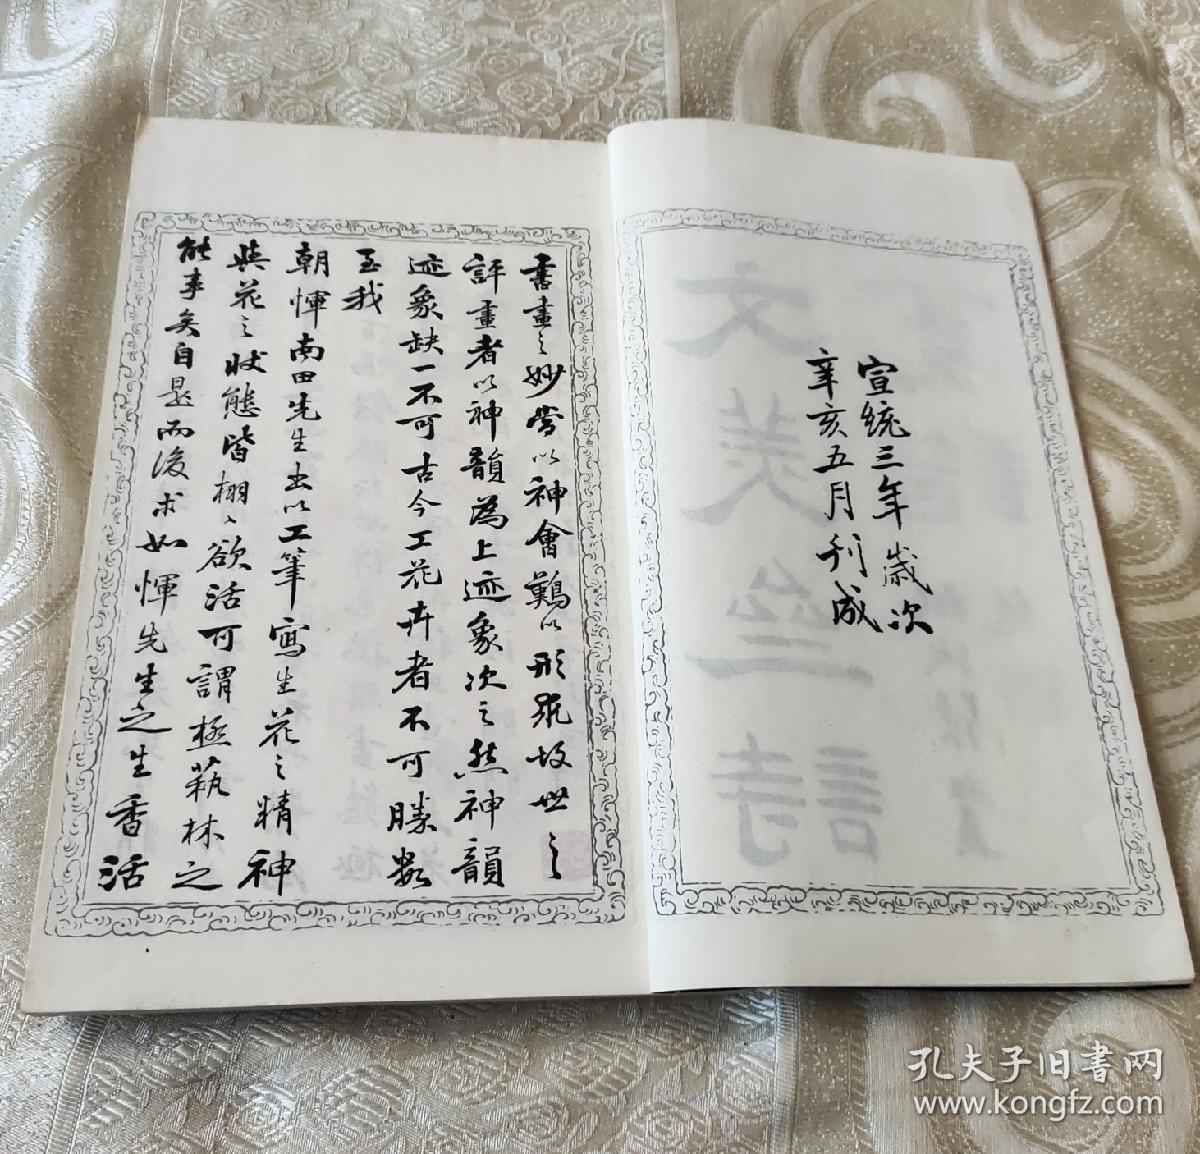 宣統三年歲次
辛亥五月刊成
書畫之妙當以神會難以形求故世之
評畫者以神韻為上迹象次之然神韻
迹象缺一不可古今工花卉者不可勝數
至我
朝惲南田先生出以工筆寫生花之精神
與花之狀態皆栩〻欲活可謂極藝林之
能事矣自是而後求如惲先生之生香活
孔夫子旧书网
www.kongfz.com